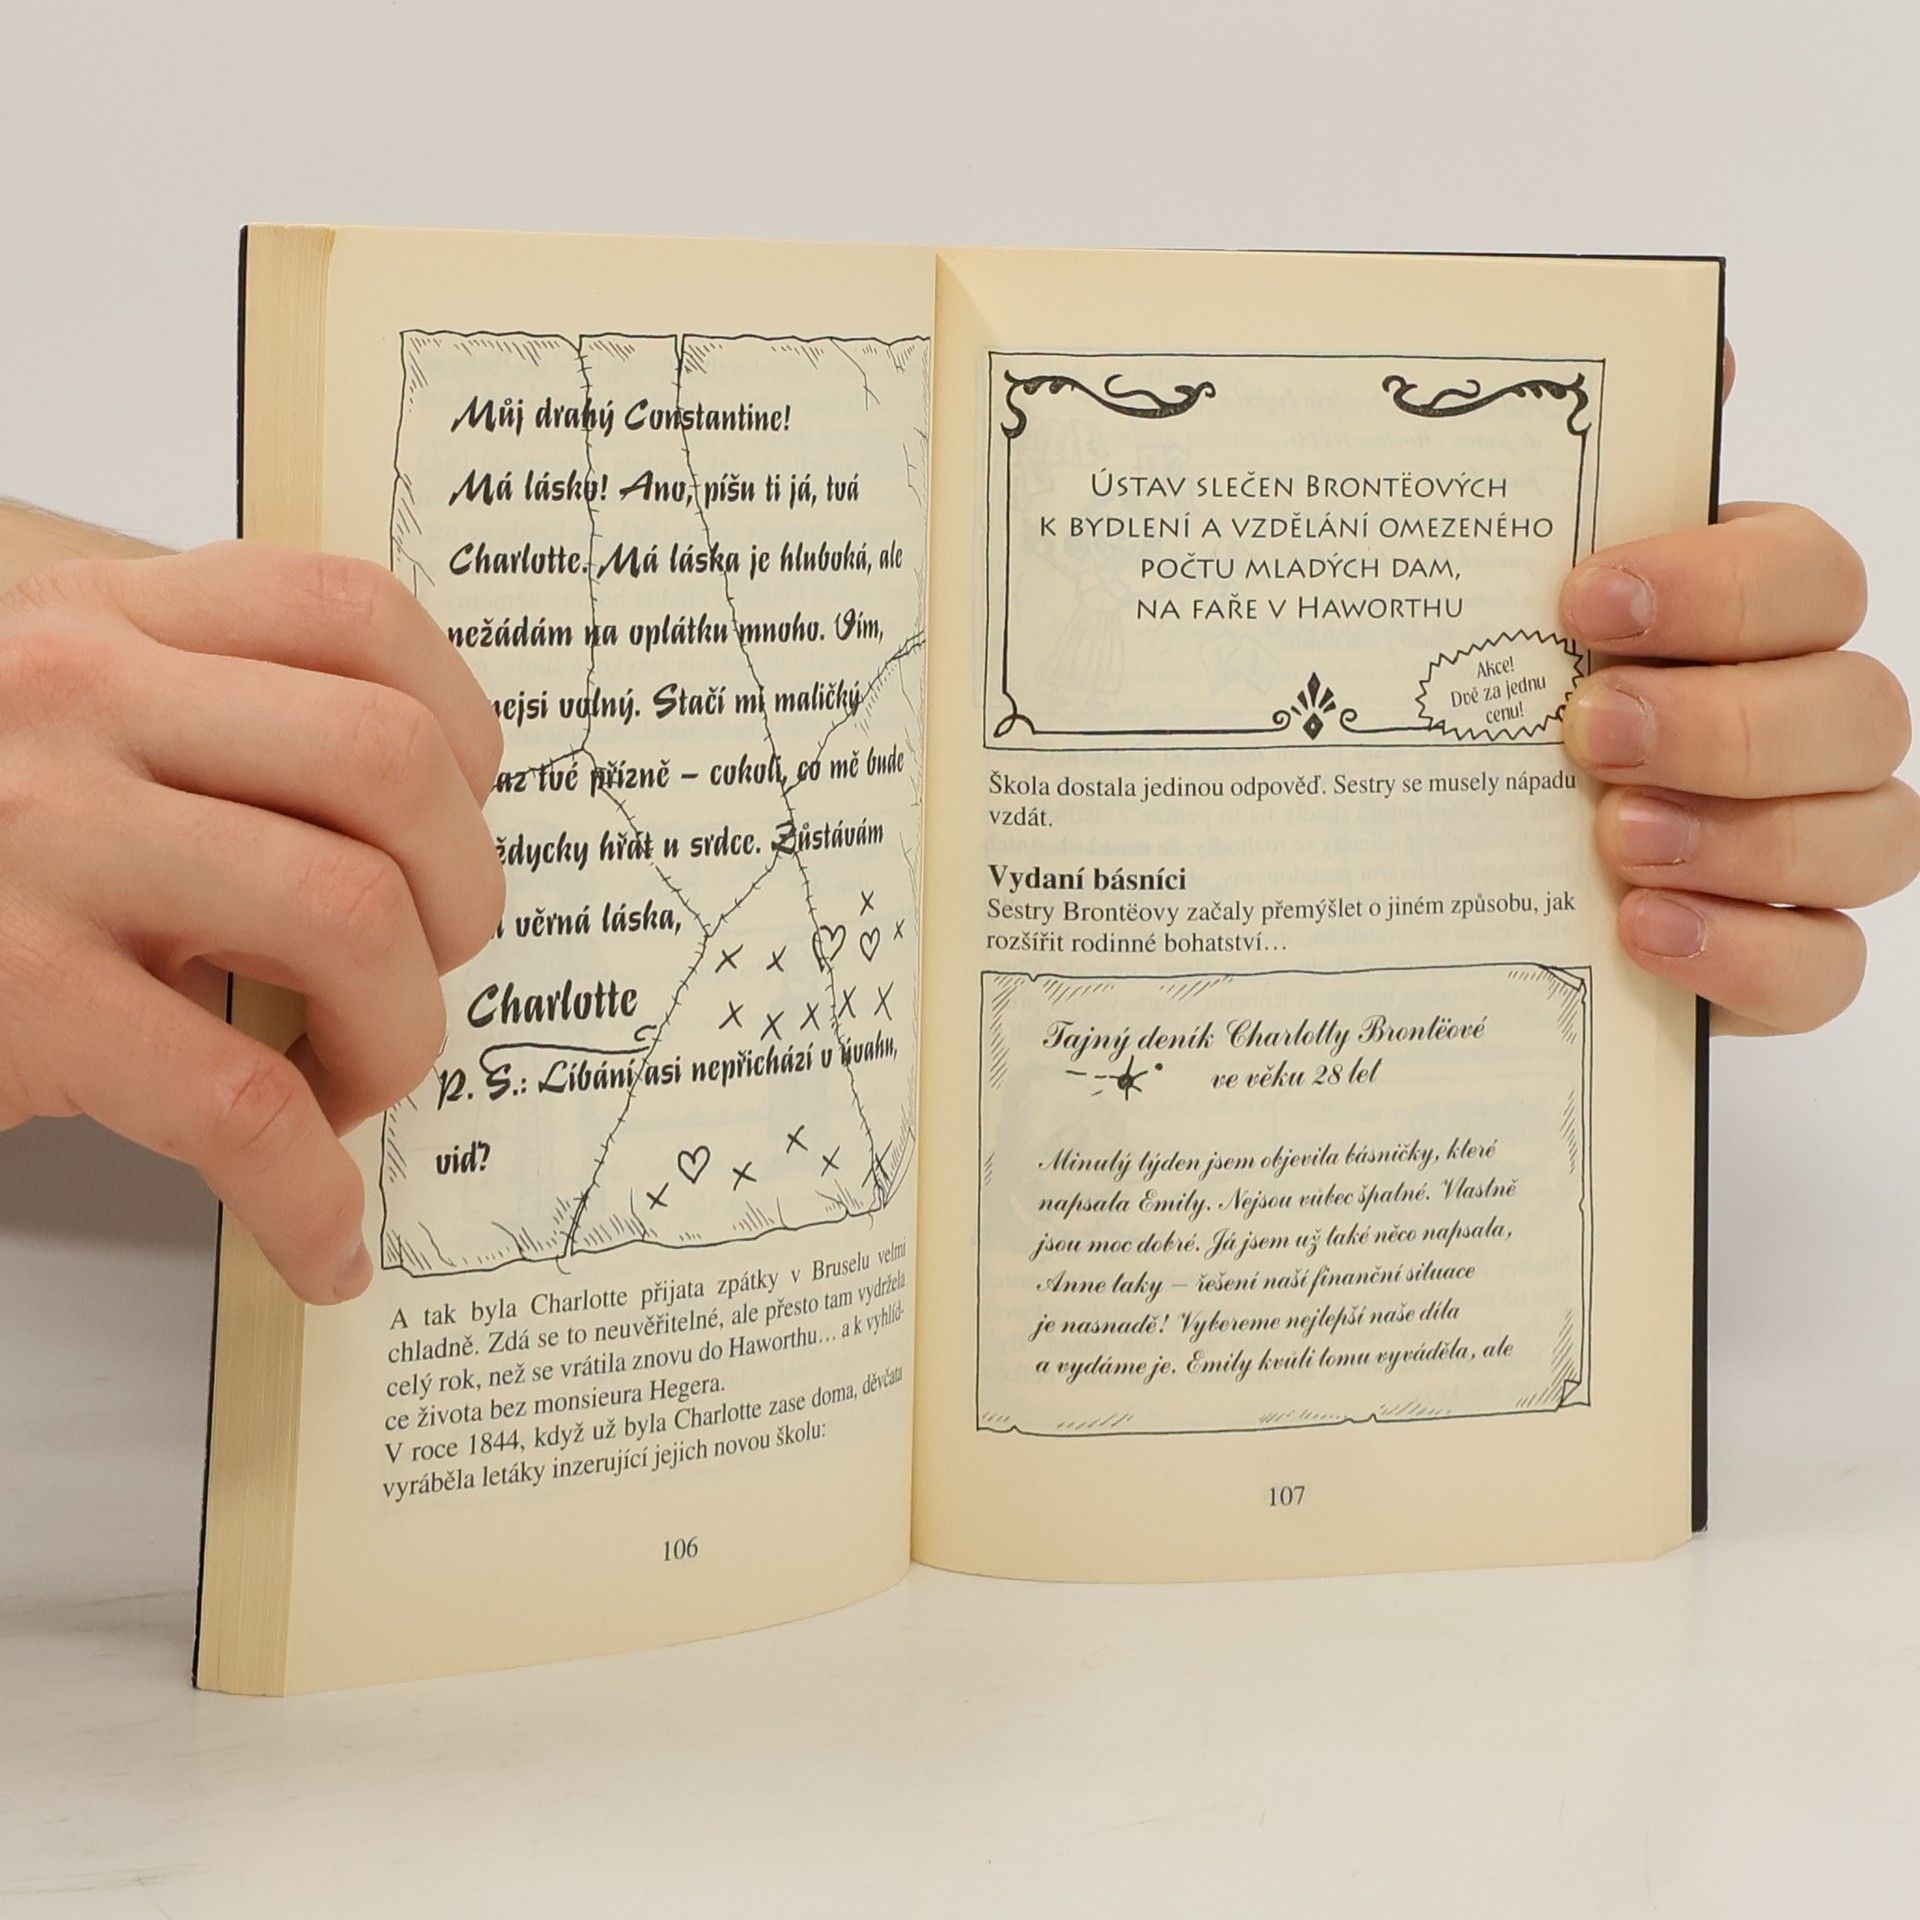 Můj drahý Constantine!
Má lásko! Ano, píšu ti já, tvá
Charlotte. Má láska je hluboká, ale
nežádám na oplátku mnoho. Vím,
nejsi volný. Stačí mi maličký
tvé přízně – cokoli, co mě bude
hřát u srdce. Zůstávám
věrná láska,
Charlotte
P. S.: Líbání asi nepřichází v úvahu,
viď?
A tak byla Charlotte přijata zpátky v Bruselu velmi
chladně. Zdá se to neuvěřitelné, ale přesto tam vydržela
celý rok, než se vrátila znovu do Haworthu… a k vyhlíd-
ce života bez monsieura Hegera.
V roce 1844, když už byla Charlotte zase doma, děvčata
vyráběla letáky inzerující jejich novou školu:
106
ÚSTAV SLEČEN BRONTËOVÝCH
K BYDLENÍ A VZDĚLÁNÍ OMEZENÉHO
POČTU MLADÝCH DAM,
NA FAŘE V HAWORTHU
Akce!
Dvě za jednu
cenu!
Škola dostala jedinou odpověď. Sestry se musely nápadu
vzdát.
Vydaní básníci
Sestry Brontëovy začaly přemýšlet o jiném způsobu, jak
rozšířit rodinné bohatství…
Tajný deník Charlotty Brontëové
ve věku 28 let
Minulý týden jsem objevila básničky, které
napsala Emily. Nejsou vůbec špatné. Vlastně
jsou moc dobré. Já jsem už také něco napsala,
Anne taky – řešení naší finanční situace
je nasnadě! Vybereme nejlepší naše díla
a vydáme je. Emily kvůli tomu vyváděla, ale
107